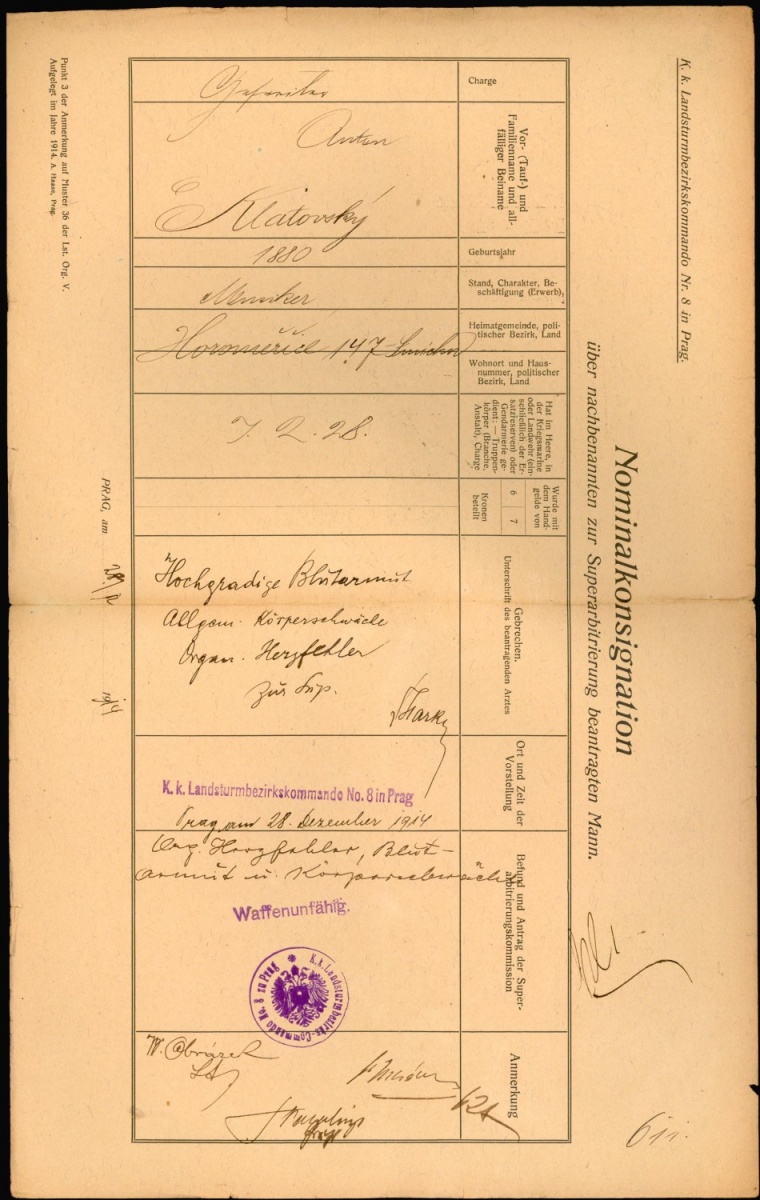 K. k. Landsturmbezirkskommando Nr. 8 in Prag.
Nominalkonsignation
über nachbenannten zur Superarbitrierung beantragten Mann.
Charge
Gefreiter
Vor- (Tauf-) und
Familienname und all-
fälliger Beiname
Anton
Klatovský
Geburtsjahr
1880
Stand, Charakter, Be-
schäftigung (Erwerb),
Musiker
Heimatgemeinde, poli-
tischer Bezirk, Land
Horoměřic 147 Smichov
Wohnort und Haus-
nummer, politischer
Bezirk, Land
Hat im Heere, in
der Kriegsmarine
oder Landwehr (ein-
schließlich der Er-
satzreserven) oder
Gendarmerie ge-
dient: — Truppen-
körper (Branche,
Anstalt), Charge
28.
Wurde mit
dem Hand-
gelde von
6 7
Kronen
beteilt
Gebrechen.
Unterschrift des beantragenden Arztes
Hochgradige Blutarmut
Allgem. Körperschwäche
Organ. Herzfehler
zur Sup.
Ort und Zeit der
Vorstellung
K. k. Landsturmbezirkskommando No. 8 in Prag
Prag am 28. Dezember 1914
Befund und Antrag der Super-
arbitrierungskommission
Org. Herzfehler, Blut-
armut u. Körperschwäche
Waffenunfähig.
K. k. Landsturmbezirks-Commando No. 8 zu Prag
Anmerkung
PRAG, am 28/12 1914
Punkt 3 der Anmerkung auf Muster 36 der Lst. Org. V.
Aufgelegt im Jahre 1914. A. Haase, Prag.